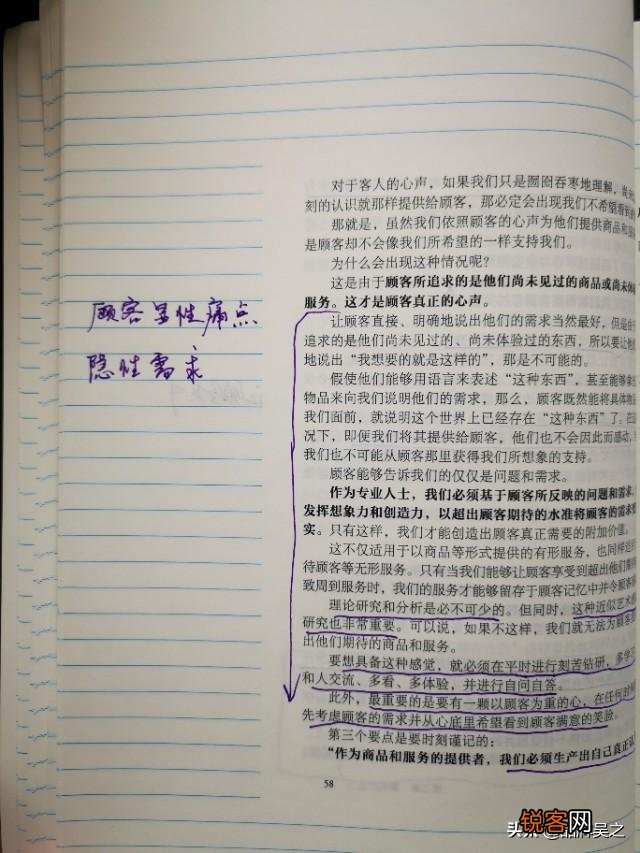 对于客人的心声，如果我们只是囫囵吞枣地理解，
刻的认识就那样提供给顾客，那必定会出现我们不希望看到的
那就是，虽然我们依照顾客的心声为他们提供商品和服
是顾客却不会像我们所希望的一样支持我们。
为什么会出现这种情况呢？
这是由于顾客所追求的是他们尚未见过的商品或尚未体
服务。这才是顾客真正的心声。
让顾客直接、明确地说出他们的需求当然最好，但是由于
追求的是他们尚未见过的、尚未体验过的东西，所以要让他
地说出“我想要的就是这样的”，那是不可能的。
假使他们能够用语言来表述“这种东西”，甚至能够拿
物品来向我们说明他们的需求，那么，顾客既然能将具体物
我们面前，就说明这个世界上已经存在“这种东西”了。在这
况下，即便我们将其提供给顾客，他们也不会因此而感动，
我们也不可能从顾客那里获得我们所想象的支持。
顾客能够告诉我们的仅仅是问题和需求。
作为专业人士，我们必须基于顾客所反映的问题和需求，
发挥想象力和创造力，以超出顾客期待的水准将顾客的需求
实。只有这样，我们才能创造出顾客真正需要的附加价值。
这不仅适用于以商品等形式提供的有形服务，也同样适
待顾客等无形服务。只有当我们能够让顾客享受到超出他们期
致周到服务时，我们的服务才能够留存于顾客记忆中并令顾客
理论研究和分析是必不可少的。但同时，这种近似艺术
研究也非常重要。可以说，如果不这样，我们就无法为顾客
出他们期待的商品和服务。
要想具备这种感觉，就必须在平时进行刻苦钻研，多学习
和人交流、多看、多体验，并进行自问自答。
此外，最重要的是要有一颗以顾客为重的心，在任何
先考虑顾客的需求并从心底里希望看到顾客满意的笑脸。
第三个要点是要时刻谨记的：
“作为商品和服务的提供者，我们必须生产出自己真正
58
顾客显性痛点
隐性需求
头条
锐客网